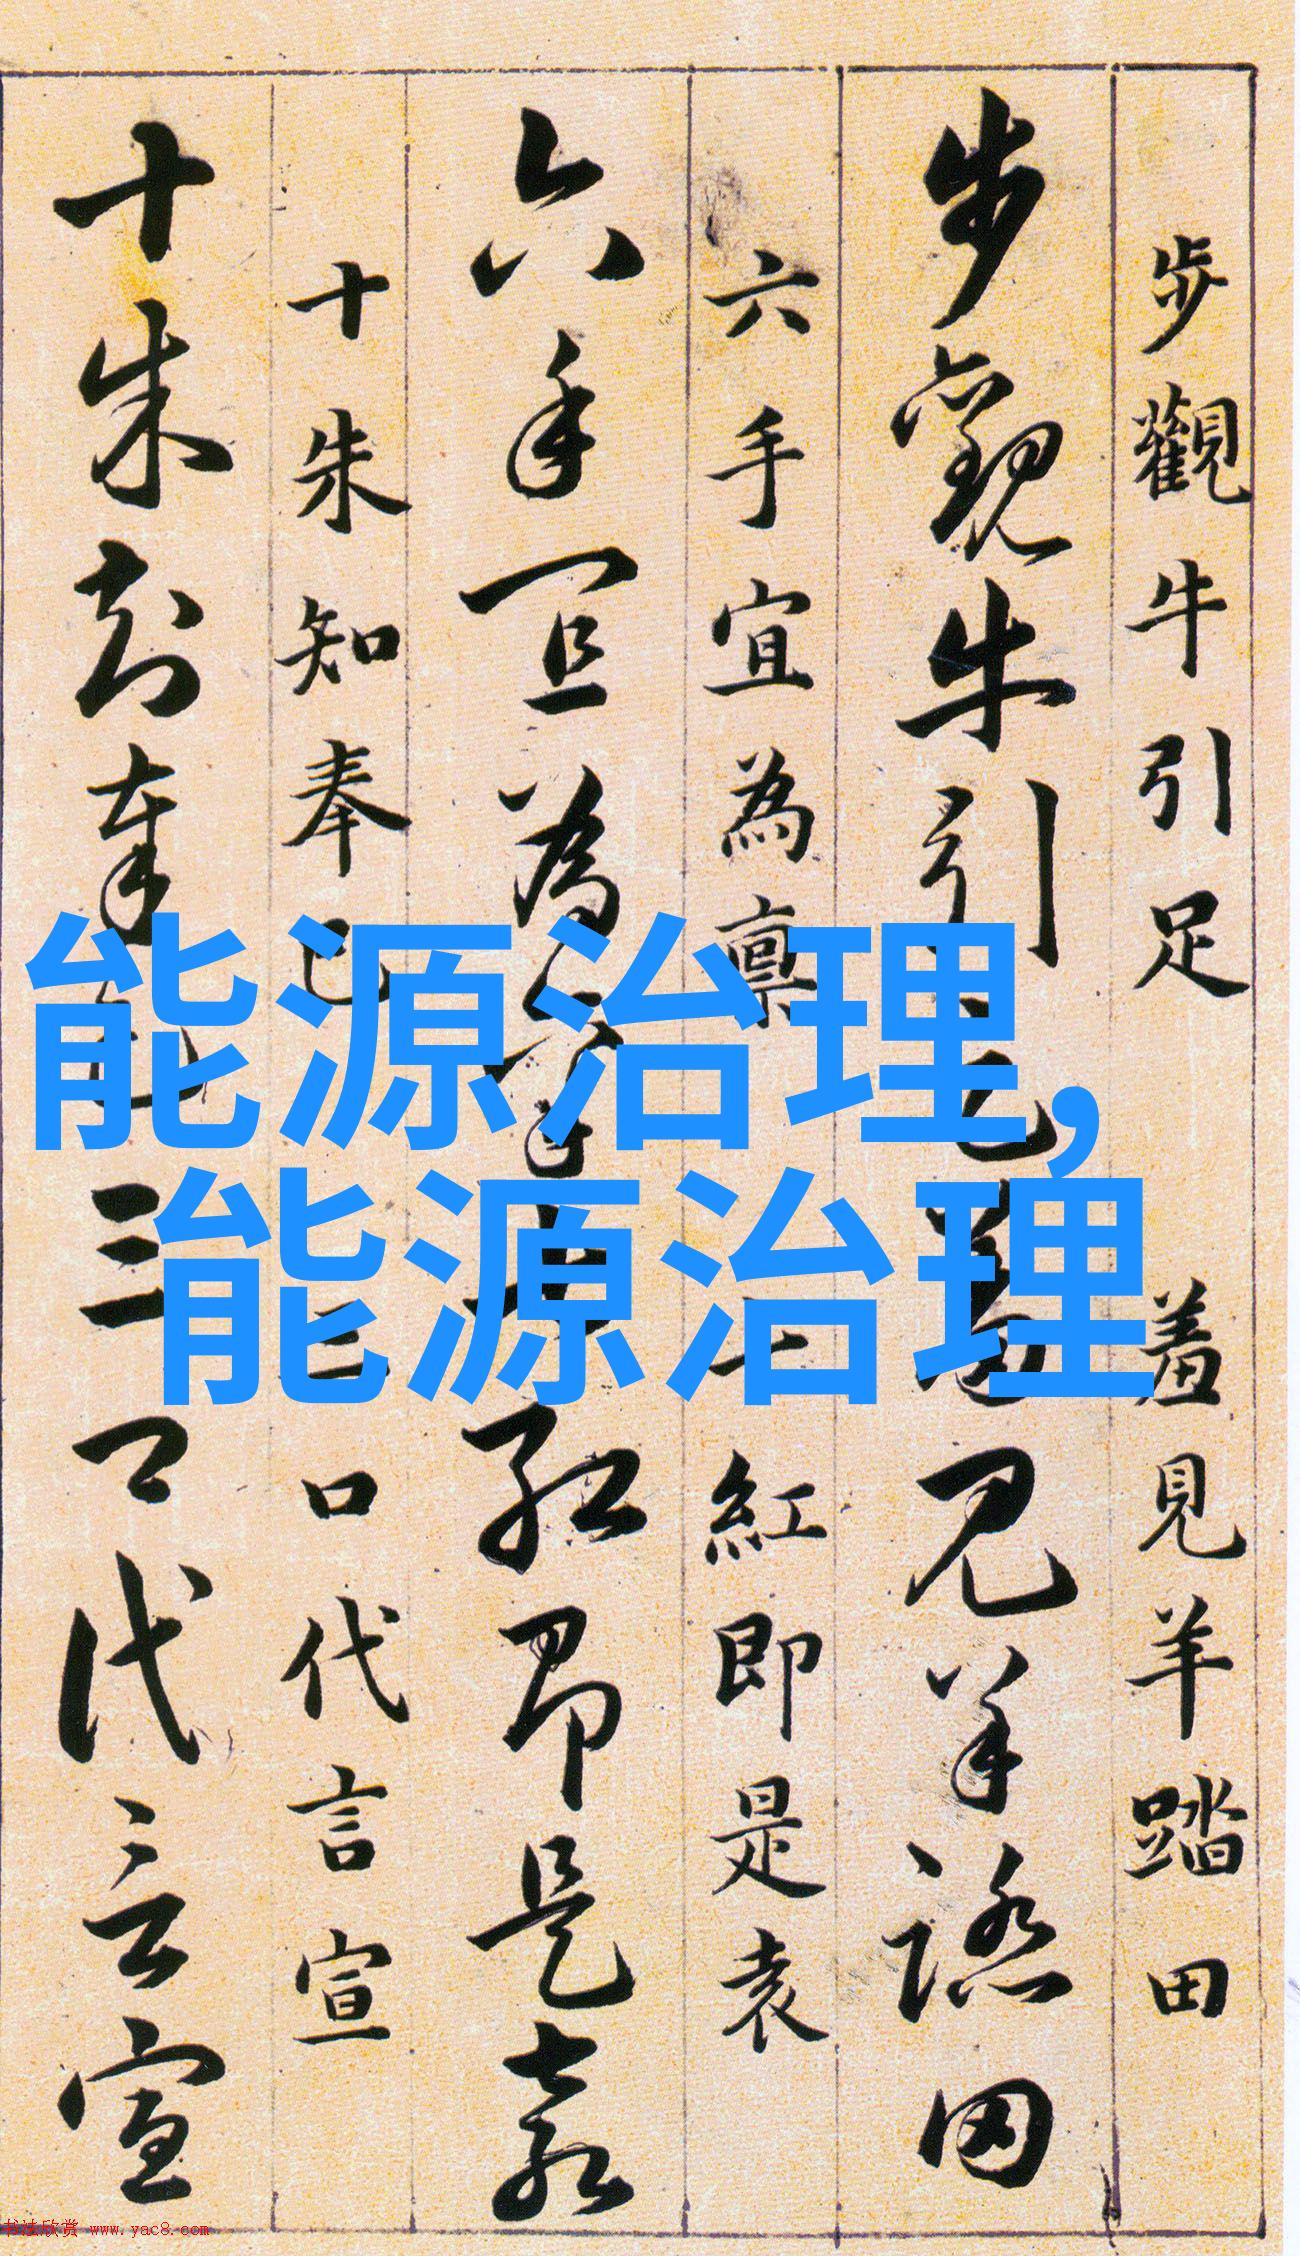 步觀牛引足 羞見羊踏田
步觀牛引足羞見羊踏田
六手宜為稟 紅即是袁
六手宜為 紅即是袁
十朱知奉已 三口代言宣
十朱知奉 三口代言宣
能源治理,
能源治理
书法欣赏 www.yac8.com